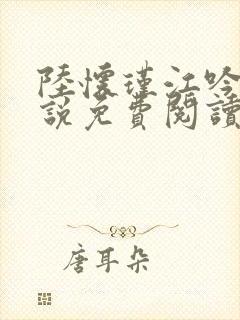 陸懷瑾江吟
說免費閱讀
唐耳朵